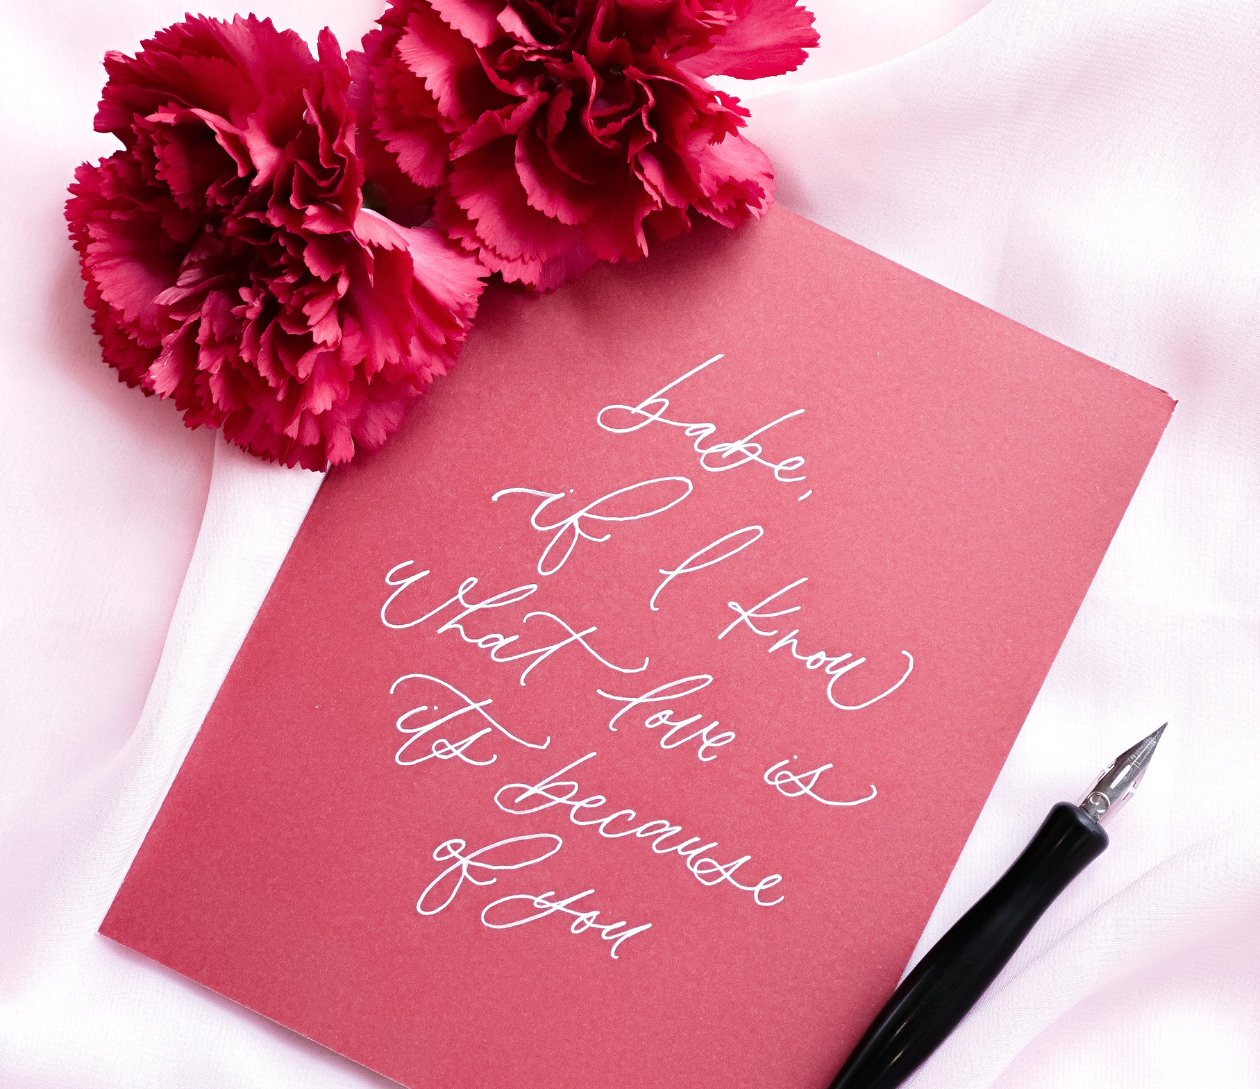 babe,
if I know
what love is
it's because
of you